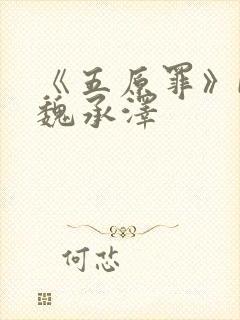 《五原罪》
魏承泽
何忿